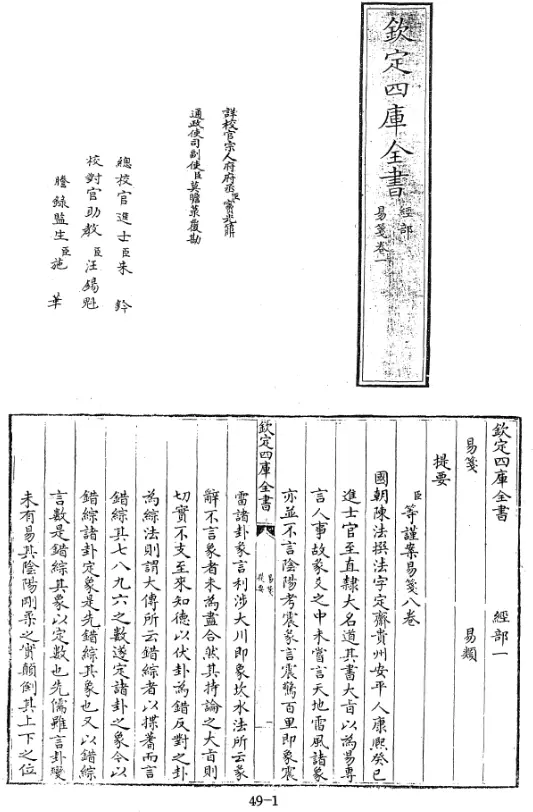 欽定四庫全書
經部
易箋卷一
詳校官宗人府府丞臣竇光鼐
通政使司副使臣莫瞻菉覆勘
總校官進士臣朱鈐
校對官助教臣汪錫魁
謄錄監生臣施華
欽定四庫全書 經部一
易箋 易類
提要
臣等謹案易箋八卷
國朝陳法撰法字定齋貴州安平人康熙癸巳
進士官至直隸大名道其書大旨以為易專
言人事故彖爻之中未嘗言天地雷風諸象
亦並不言陰陽考震彖言震驚百里即象震
欽定四庫全書
易箋
提要
一
雷諸卦彖言利涉大川即象坎水法所云彖
辭不言象者未為盡合然其持論之大旨則
切實不支至來知德以伏卦為錯反對之卦
為綜法則謂大傳所云錯綜者以揲蓍而言
錯綜其七八九六之數遂定諸卦之象今以
錯綜諸卦定象是先錯綜其象也又以錯綜
言數是錯綜其象以定數也先儒雖言卦變
未有易其陰陽剛柔之實顛倒其上下之位
49-1